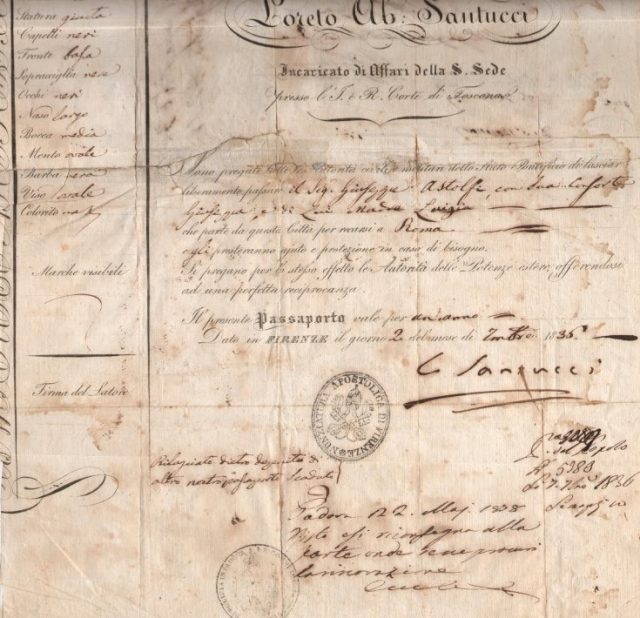 Loreto Ab: Santucci
Incaricato di Affari della S. Sede
presso l'I. e R. Corte di Toscana
Statura giusta
Capelli neri
Fronte bassa
Sopracciglia nere
Occhi neri
Naso largo
Bocca media
Mento ovale
Barba nera
Viso ovale
Colorito
Marche visibili
Firma del Latore
Sono pregate tutte le Potestà civili e militari dello Stato Pontificio di lasciar
liberamente passare il Sig. Giuseppe Astolfi, con sua consorte
Giuseppa, e di Lui Madre Luigia
che parte da questa Città per recarsi a Roma
e gli presteranno ajuto e protezione in caso di bisogno.
Si pregano per lo stesso effetto le Autorità delle Potenze estere, offerendosi
ad una perfetta reciprocanza.
Il presente Passaporto vale per un anno
Dato in FIRENZE il giorno 2 del mese di 183
Santucci
NUNZIATURA APOSTOLICA DI FIRENZE
Rilasciato dietro deposito di
altro nostro passaporto scaduto
del Popolo
6380
1836
Padova 22 Mag. 1838
Visto
alla
parte onde
la rinovazione